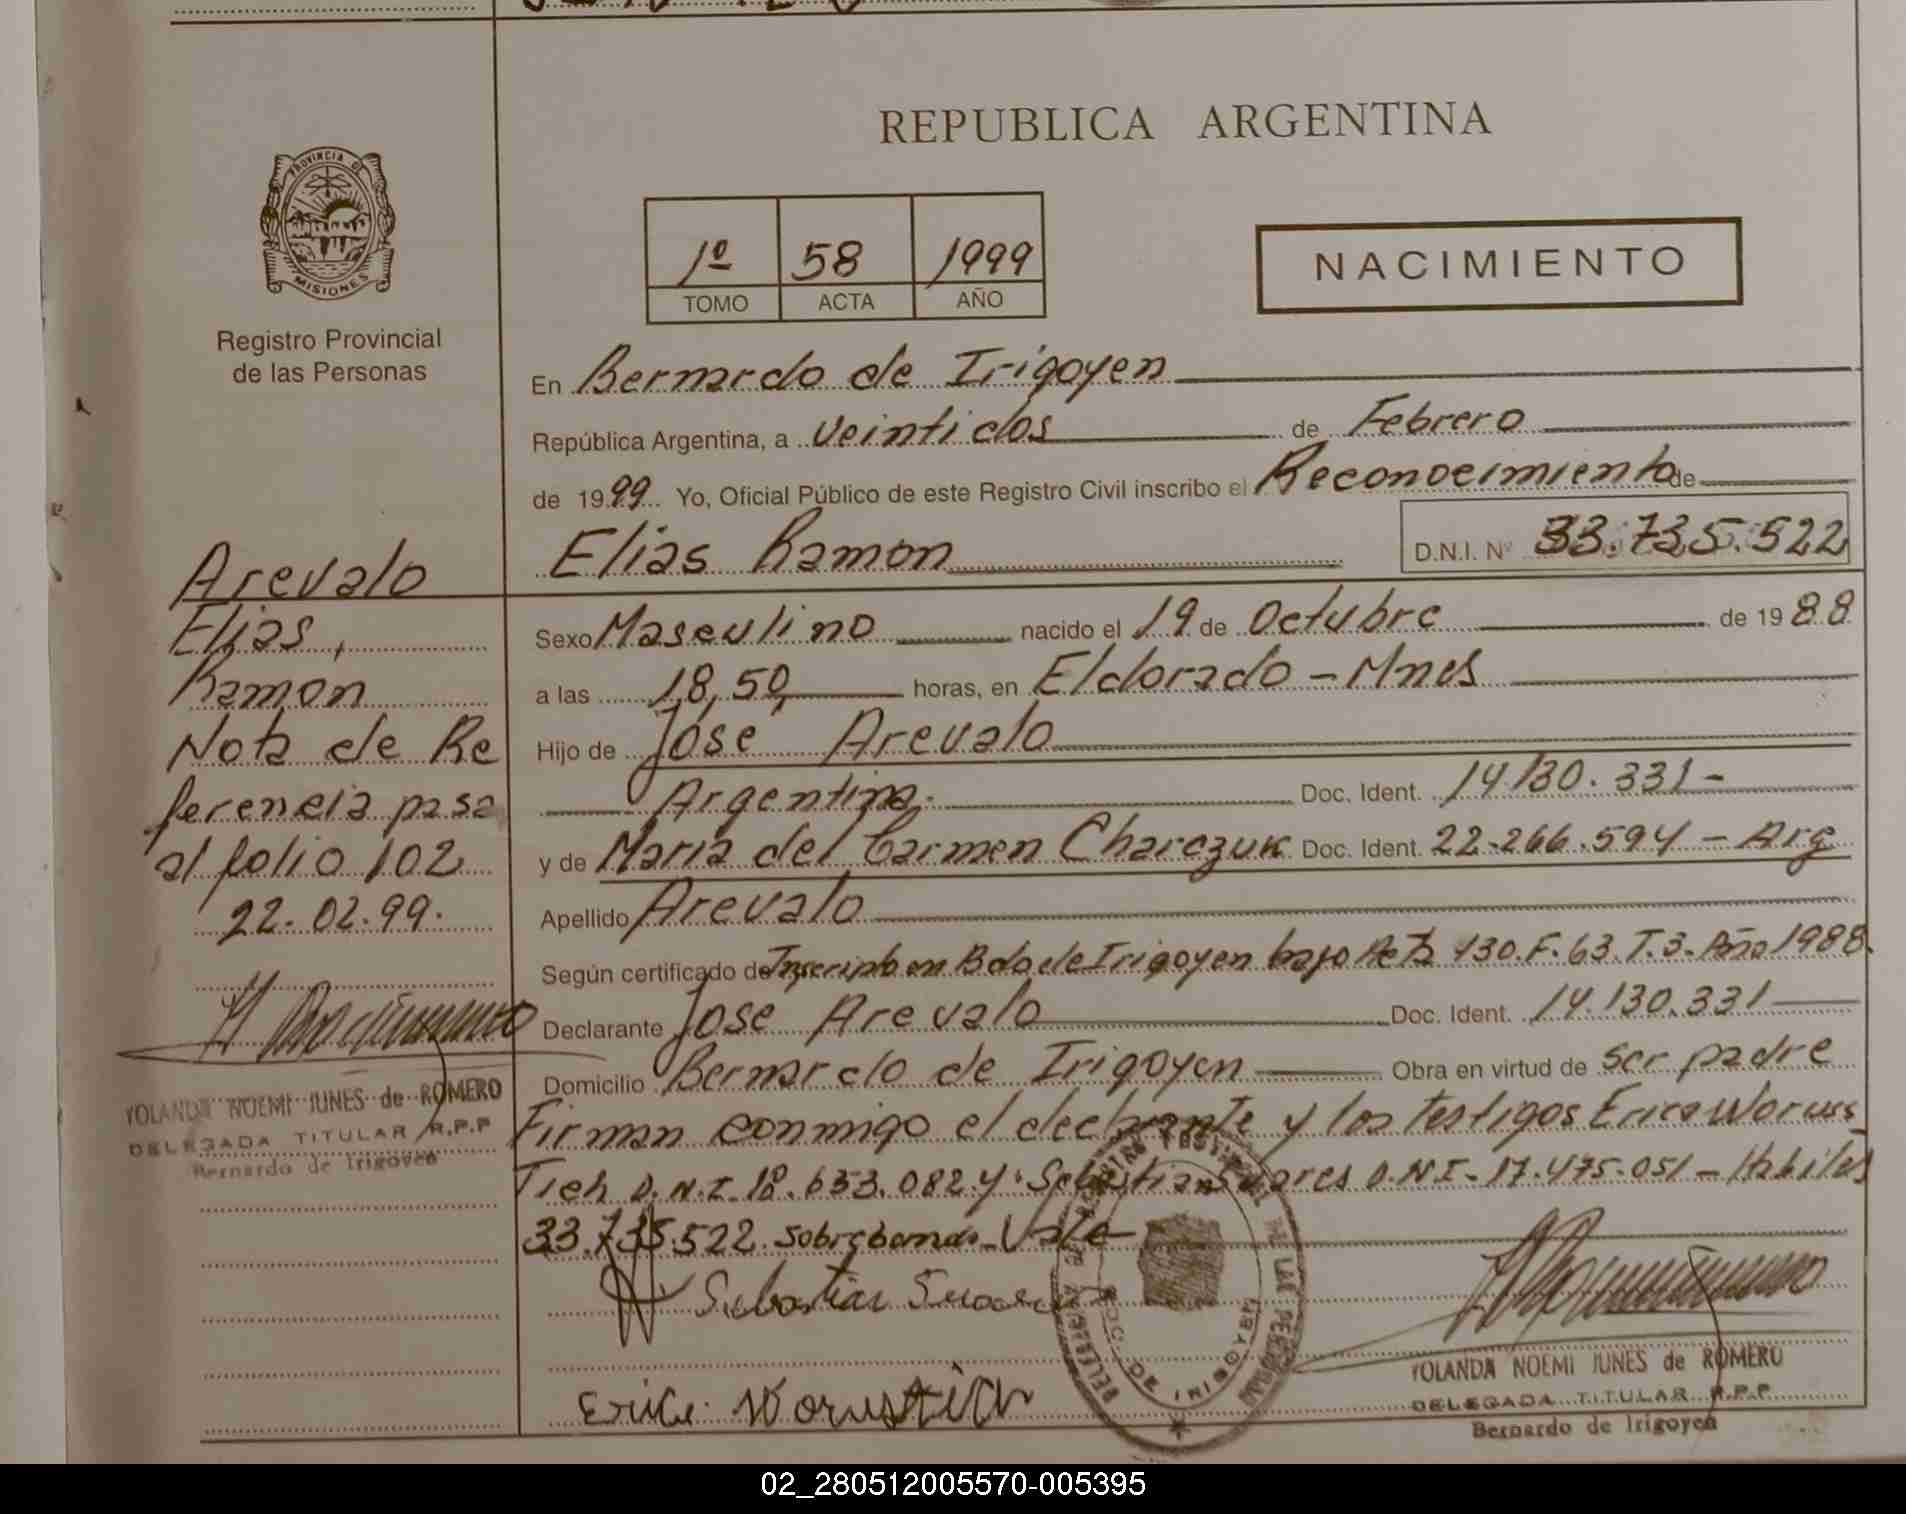 PROVINCIA DE
MISIONES
Registro Provincial
de las Personas
Arevalo
Elias,
Ramon
Nota de Re
ferencia pasa
al folio 102
22-02-99.
YOLANDA NOEMI JUNES de ROMERO
DELEGADA TITULAR R.P.P
Bernardo de Irigoyen
REPUBLICA ARGENTINA
1º 58 1999
TOMO ACTA AÑO
NACIMIENTO
En Bernardo de Irigoyen
República Argentina, a veintidos de Febrero
de 1999. Yo, Oficial Público de este Registro Civil inscribo el Reconocimiento de
Elias Ramon D.N.I. Nº 33.735.522
Sexo Masculino nacido el 19 de Octubre de 1988
a las 18,50 horas, en Eldorado - Mnes
Hijo de José Arevalo
Argentina. Doc. Ident. 14130.331-
y de Maria del Carmen Charczuk Doc. Ident. 22-266.594 - Arg
Apellido Arevalo
Según certificado de Inscripto en Bdo de Irigoyen bajo Acta 430.F.63.T.3-Año 1988.
Declarante Jose Arevalo Doc. Ident. 14.130.331
Domicilio Bernardo de Irigoyen Obra en virtud de ser padre
Firman conmigo el declarante y los testigos Erica Worus
Tich D.N.I. 18.633.082 y Sebastian Suares D.N.I-17.475.051-Habiles
33.735.522. sobreborrado-Vale-
Sebastian Suares
DE LAS PERSONAS
DE IRIGOYEN
Erica Worustich
YOLANDA NOEMI JUNES de ROMERO
DELEGADA TITULAR R.P.P
Bernardo de Irigoyen
02_280512005570-005395